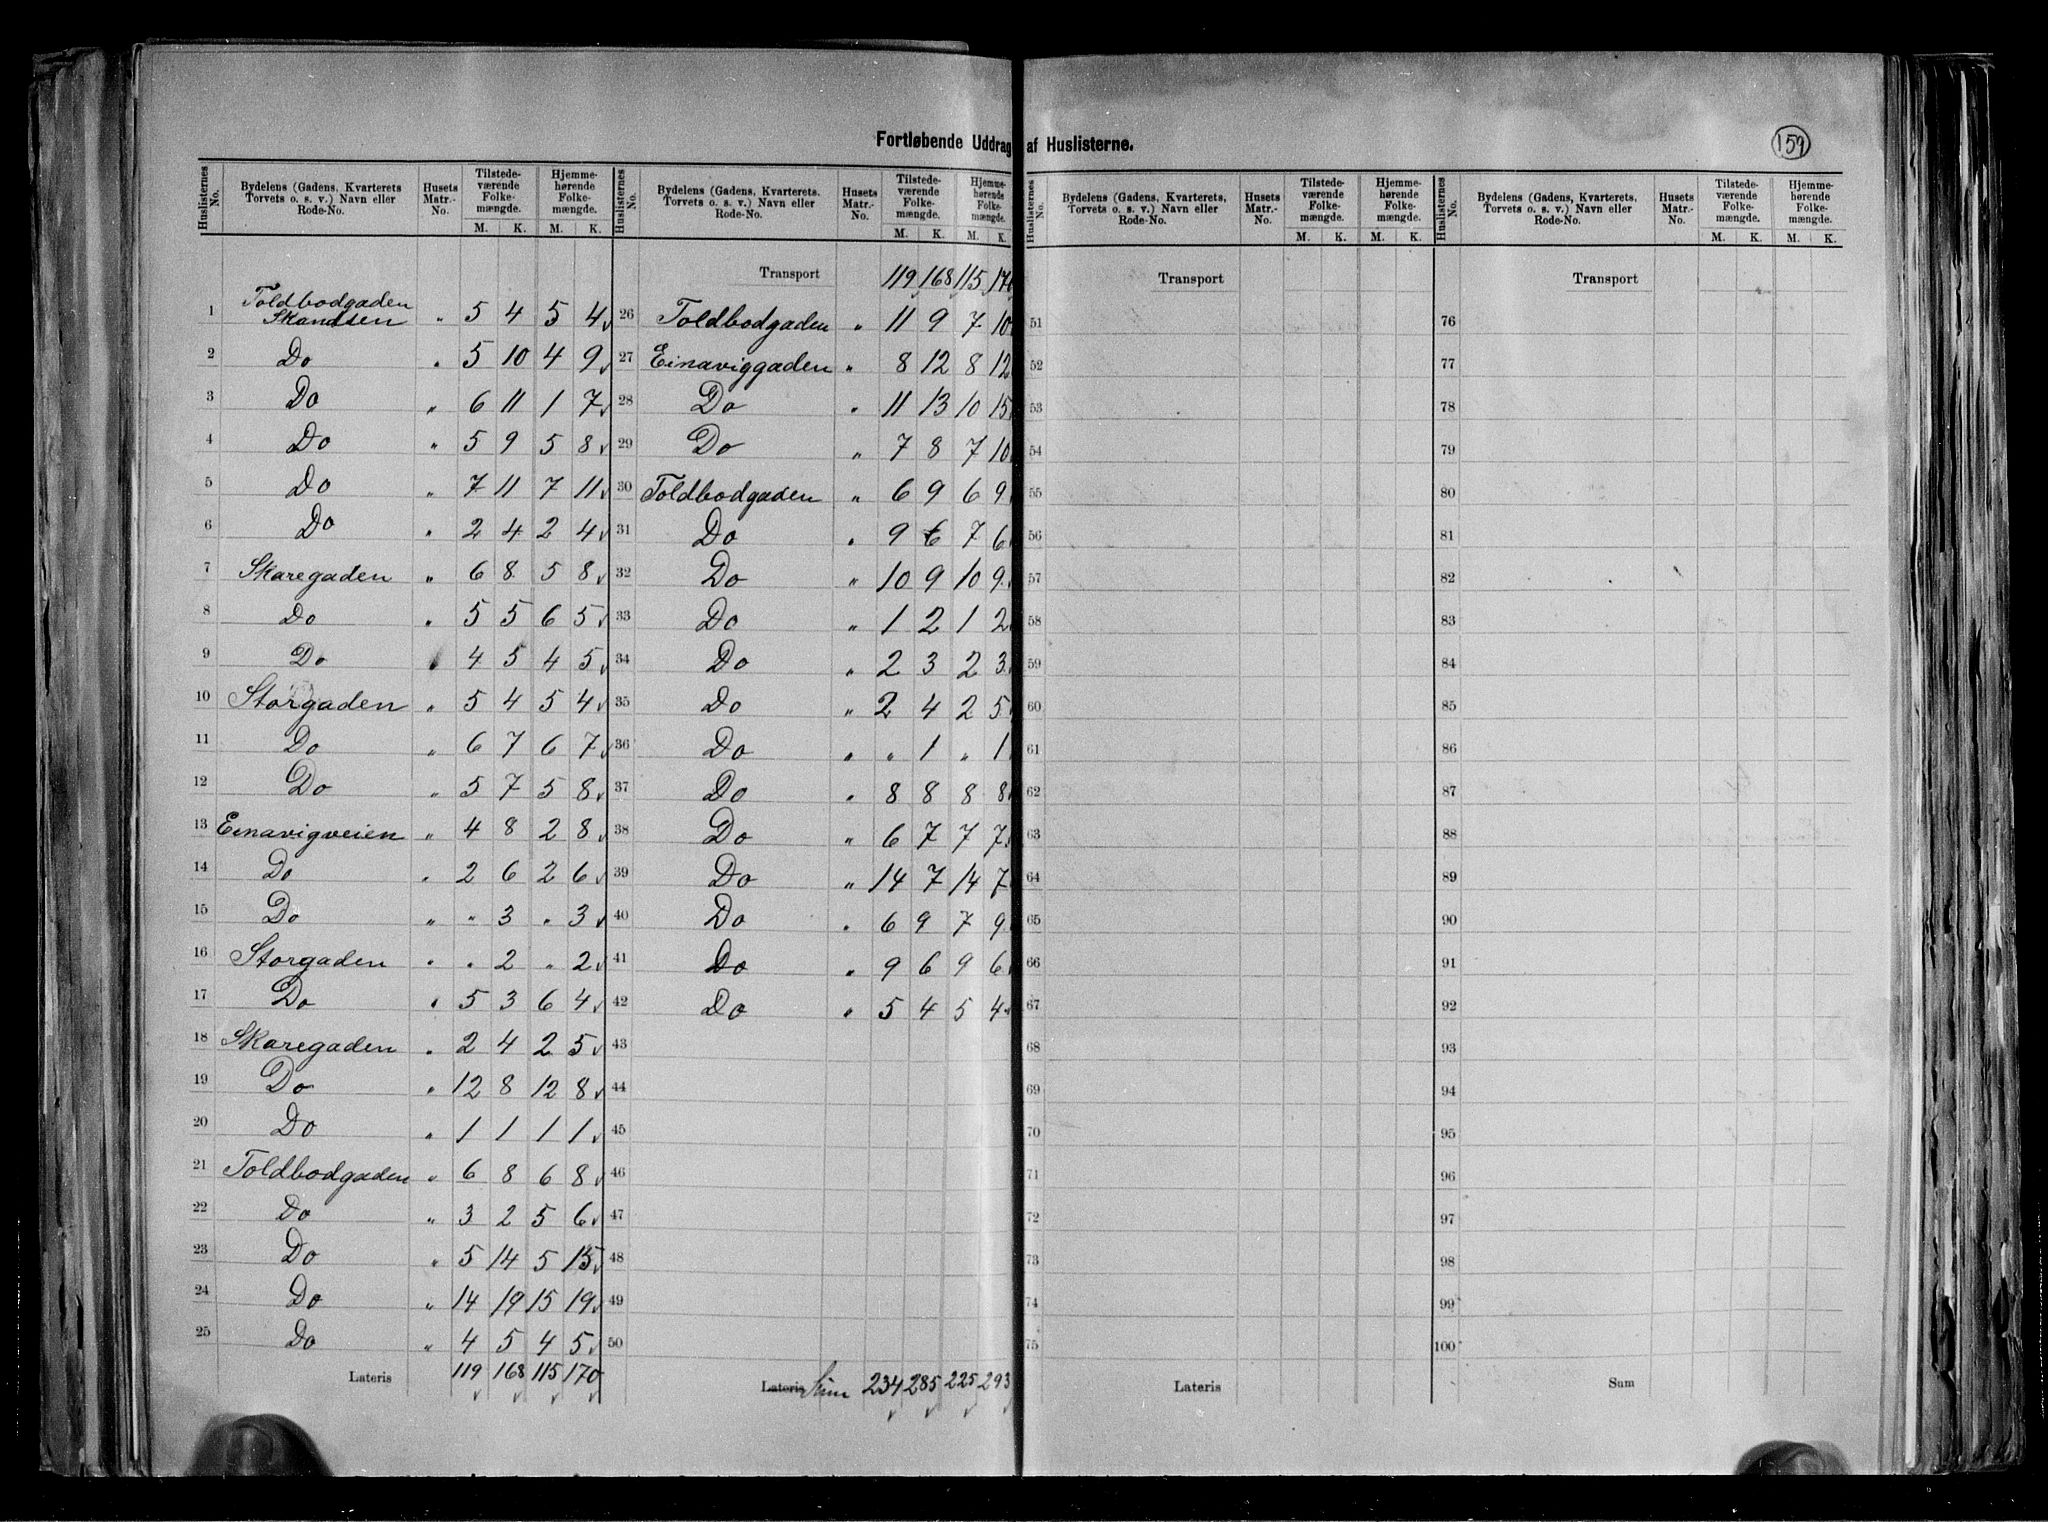 Fortløbende Uddrag af Huslisterne.
159
Huslisternes No. | Bydelens (Gadens, Kvarterets Torvets o. s. v.) Navn eller Rode-No. | Husets Matr.-No. | Tilstedeværende Folkemængde. M. K. | Hjemmehørende Folkemængde. M. K.
1 Toldbodgaden Skandsen " 5 4 5 4
2 Do " 5 10 4 9
3 Do " 6 11 1 7
4 Do " 5 9 5 8
5 Do " 7 11 7 11
6 Do " 2 4 2 4
7 Skaregaden " 6 8 5 8
8 Do " 5 5 6 5
9 Do " 4 5 4 5
10 Storgaden " 5 4 5 4
11 Do " 6 7 6 7
12 Do " 5 7 5 8
13 Einavigveien " 4 8 2 8
14 Do " 2 6 2 6
15 Do " " 3 " 3
16 Storgaden " " 2 " 2
17 Do " 5 3 6 4
18 Skaregaden " 2 4 2 5
19 Do " 12 8 12 8
20 Do " 1 1 1 1
21 Toldbodgaden " 6 8 6 8
22 Do " 3 2 5 6
23 Do " 5 14 5 15
24 Do " 14 19 15 19
25 Do " 4 5 4 5
Lateris 119 168 115 170
Huslisternes No. | Bydelens (Gadens, Kvarterets. Torvets o. s. v.) Navn eller Rode-No. | Husets Matr.-No. | Tilstedeværende Folkemængde. M. K. | Hjemmehørende Folkemængde. M. K.
Transport 119 168 115 170
26 Toldbodgaden " 11 9 7 10
27 Einaviggaden " 8 12 8 12
28 Do " 11 13 10 15
29 Do " 7 8 7 10
30 Toldbodgaden " 6 9 6 9
31 Do " 9 6 7 6
32 Do " 10 9 10 9
33 Do " 1 2 1 2
34 Do " 2 3 2 3
35 Do " 2 4 2 5
36 Do " " 1 " 1
37 Do " 8 8 8 8
38 Do " 6 7 7 7
39 Do " 14 7 14 7
40 Do " 6 9 7 9
41 Do " 9 6 9 6
42 Do " 5 4 5 4
43
44
45
46
47
48
49
50
Lateris Sum 234 285 225 293
Huslisternes No. | Bydelens (Gadens, Kvarterets, Torvets o. s. v.) Navn eller Rode-No. | Husets Matr.-No. | Tilstedeværende Folkemængde. M. K. | Hjemmehørende Folkemængde. M. K.
Transport
51
52
53
54
55
56
57
58
59
60
61
62
63
64
65
66
67
68
69
70
71
72
73
74
75
Lateris
Huslisternes No. | Bydelens (Gadens, Kvarterets, Torvets o. s. v.) Navn eller Rode-No. | Husets Matr.-No. | Tilstedeværende Folkemængde. M. K. | Hjemmehørende Folkemængde. M. K.
Transport
76
77
78
79
80
81
82
83
84
85
86
87
88
89
90
91
92
93
94
95
96
97
98
99
100
Sum